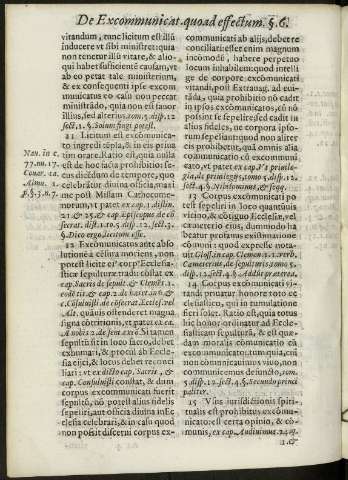 De Excommunicat. quoad effectum. §.6.
vitandum, tunc licitum est illũ
inducere vt sibi ministret: quia
non tenetur illũ vitare, & alio-
qui habet sufficientẽ causam, vt
ab eo petat tale ministerium,
& ex consequenti ipse excom
municatus eo casu non peccat
ministrãdo, quia non est fauor
illius, sed alterius, tom. 5. disp. 12
sect. 1. §. Solum fingi potest.
11 Licitum est excommunica-
to ingredi tẽpla, & in eis priua
tim orare. Ratio est, quia nulla
est de hoc facta prohibitio: se-
cus dicẽdum de tempore, quo
celebrãtur diuina officia, maxi
me post Missam Cathecume-
norum, vt patet ex cap.
21. & 25. & cap. Episcopus de cõ
secrat. dist. 1. to. 5. disp. 12. sect. 3.
§. Dico ergo, licitum esse.
12 Excommunicatus ante abso
lutionẽ à cẽsura moriens, non
potest licitè in corp. Ecclesia-
sticæ sepulturæ tradi: cõstat ex
cap. Sacris de sepult. & Clemẽt. 1.
eodẽ tit. & cap. 2. dist. 24. q. 2. &
c. Consuluisti de cõsecrat. Eccles. vel
Alt. quãuis ostenderet magna
signa cõtritionis, vt patet ex ca.
A nobis 2. de sent. excõ. Si tamen
sepultũ sit in loco sacro, debet
exhumari, & procul ab Eccle-
sia eijci, & locus debet reconci
liari: vt ex dicto cap. Sacris, &
cap. Consuluisti constat, & dum
corpus excommunicati fuerit
sepultũ, nõ potest alius fidelis
sepeliri, aut officia diuina in Ec
clesia celebrari, & in casu quo
non possit discerni corpus ex-
Nau. in c.
77. nu. 17.
Couar. ca.
Alma. 1.
p. §. 3. n. 7.
communicati ab alijs, debet re
conciliari: esset enim magnum
incommodũ, habere perpetuo
locum inhabilitatum: quod intelli
ge de corpore excõmunicati
vitandi, post Extrauag. ad eui-
tãda, quia prohibitio nõ cadit
in ipsos excõmunicatos, cũ nõ
possint se sepelire: sed cadit in
alios fideles, ne corpora ipso-
rum sepeliant: vnde non esset re
conciliandum, aut exhumandũ
si esset toleratus excõmuni-
cato, vt patet ex cap. Vt priuile-
gia, de priuilegijs, tom. 5. disp. 12
sect. 4. §. Nihilominus, & seqq.
13 Corpus excõmunicati po-
test sepeliri in loco quantũuis
vicino, & cõtiguo Ecclesiæ, vel
cœmeterio eius, dummodo ha
beatur proximus existimatione
cõmuni: quod expressè nota-
uit Gloss. in cap. Clemen. 1. 1. verb.
Cœmeterijs, de sepulturis. tomo 5.
disp. 12. sect. 4. §. Addue præterea.
14 Corpus excõmunicati vi-
tandi priuatur honore toto ec
clesiastico, qui in tumulatione
fieri solet. Ratio est, quia totus
hic honor ordinatur ad Eccle-
siasticam sepulturã, & est quæ-
dam moralis communicatio cũ
excommunicato viuẽdo, cui, cũ
non cõmunicauimus viuo, non
debemus nunc defuncto, tom.
5. disp. 12. sect. 4. §. Secundo princi
paliter.
15 Vsus iurisdictionis spiri-
tualis est prohibitus excõmu-
nicato; et est opinio certa, & cõ-
munis, ex cap. Audiuimus 24. q.
1. &